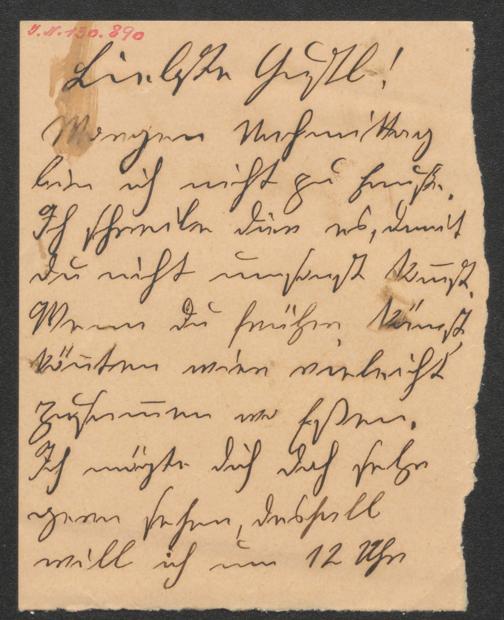 I.N. 130.890
Liebste Gustl!
Morgen Nachmittag
bin ich nicht zu hause.
Ich schreibe dier es, damit
du nicht umsonst kom̄st.
Wenn du früher kämst,
kön̄ten wier vieleicht
zusam̄en wo Eßen.
Ich mögte dich doch sehr
gern sehen, deshalb
will ich um 12 Uhr